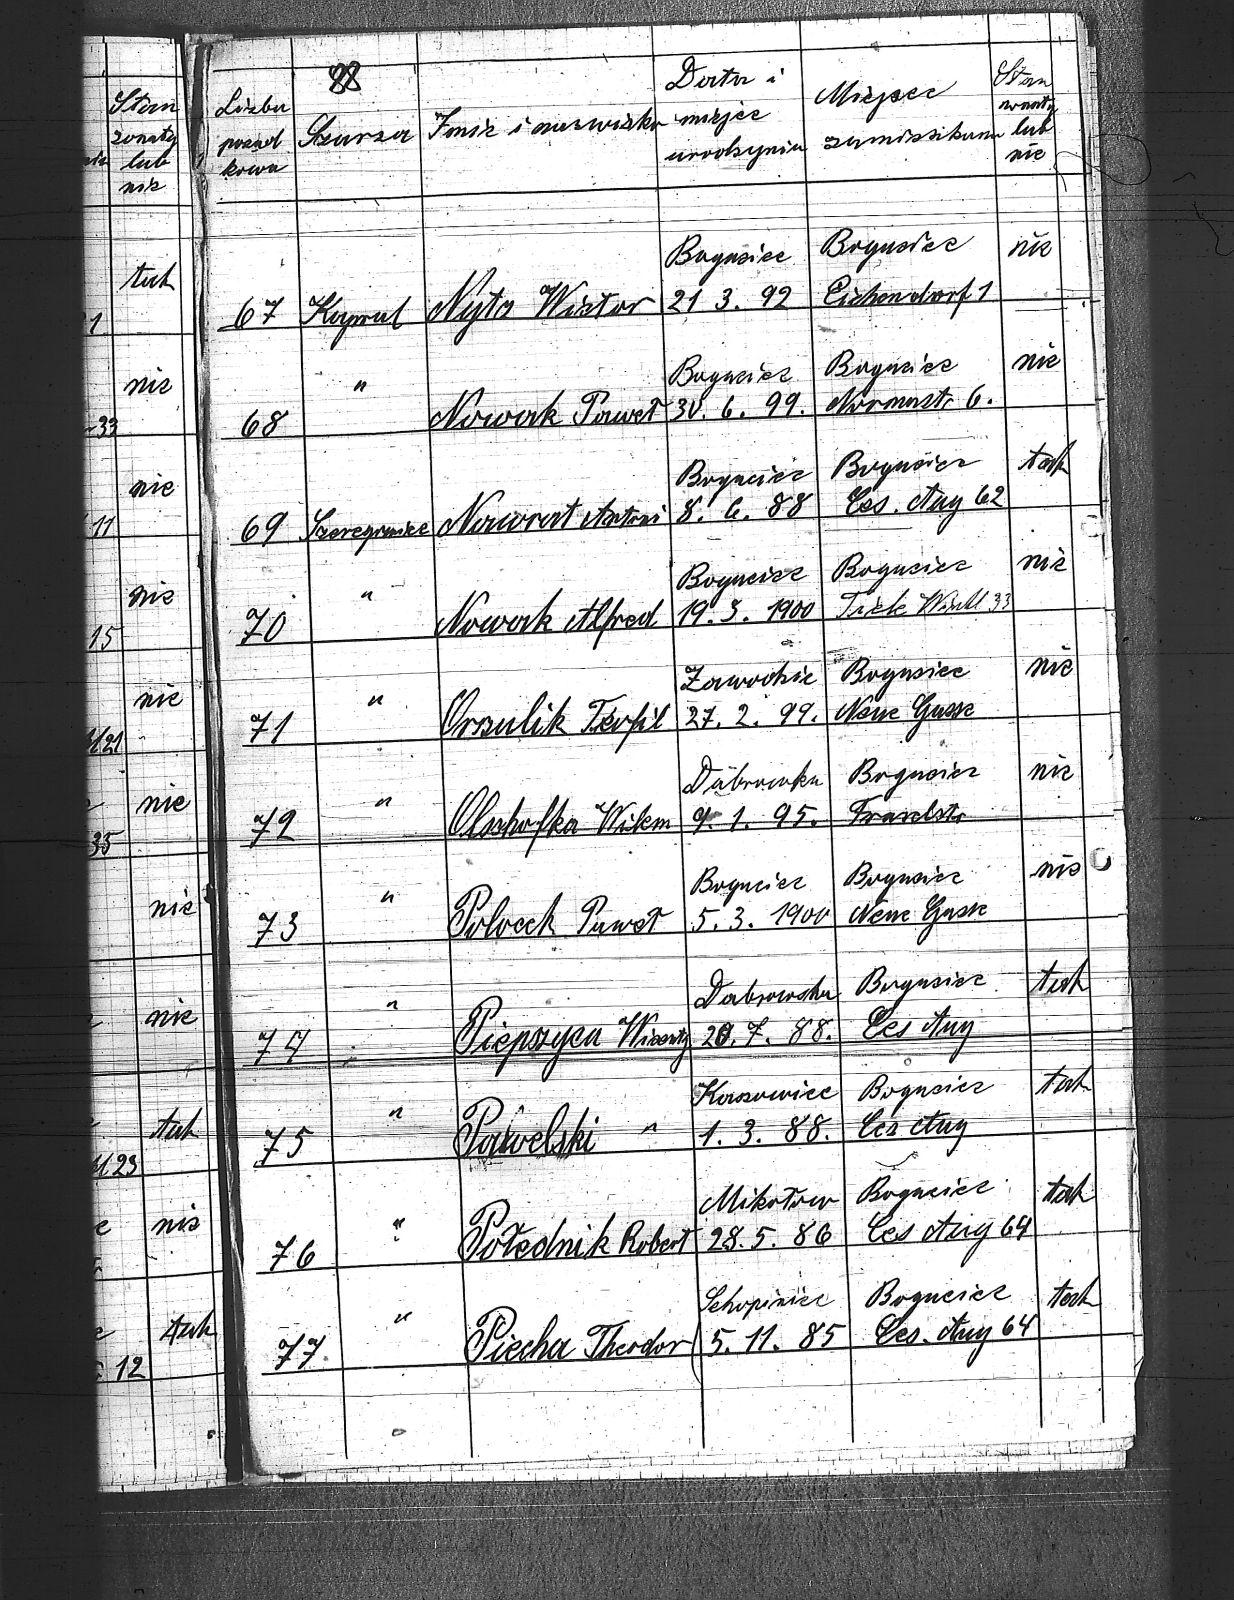 Stan
zonaty
lub
nie
tak
1
nie
33
nie
11
nie
15
nie
21
nie
35
nie
nie
tak
23
nie
tak
12
88
Liczba
poząd
kowa
Szarza
Imie i nazwizko
Data i
miejsc
urodzynia
Miejsce
zamiszikania
Stan
zonaty
lub
nie
Bogucice Bogucice nie
67 Kapral Nyto Wiktor 21 3. 92 Eichendorf 1
Bogucice Bogucice nie
68 " Nowak Paweł 30. 6. 99. Normastr 6.
Bogucice Bogucice tak
69 Szeregowiec Nawrat Antoni 8. 6. 88 Ces. Aug 62
Bogucice Bogucice nie
70 " Nowak Alfred 19. 3. 1900 33
Zawodzie Bogucice nie
71 " Orszulik Teofil 27. 2. 99. Neue Gasse
Dąbrowka Bogucice nie
72 " Olschofka 9. 1. 95.
Bogucice Bogucice nie
73 " Polocek Paweł 5. 3. 1900 Neue Gasse
Dabrowska Bogucice tak
74 " Piepszyca Wicenty 20. 7. 88. Ces Aug
Bogucice tak
75 " Pawelski " 1. 3. 88. Ces Aug
Mikołow Bogucice tak
76 " Połednik Robert 28. 5. 86 Ces Aug 64
Schopinice Bogucice tak
77 " Piecha Theodor 5. 11. 85 Ces. Aug 64